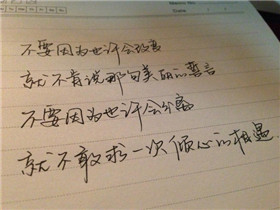 不要因为也许会改变
就不肯说那句美丽的誓言
不要因为也许会分离
就不敢求一次倾心的相遇